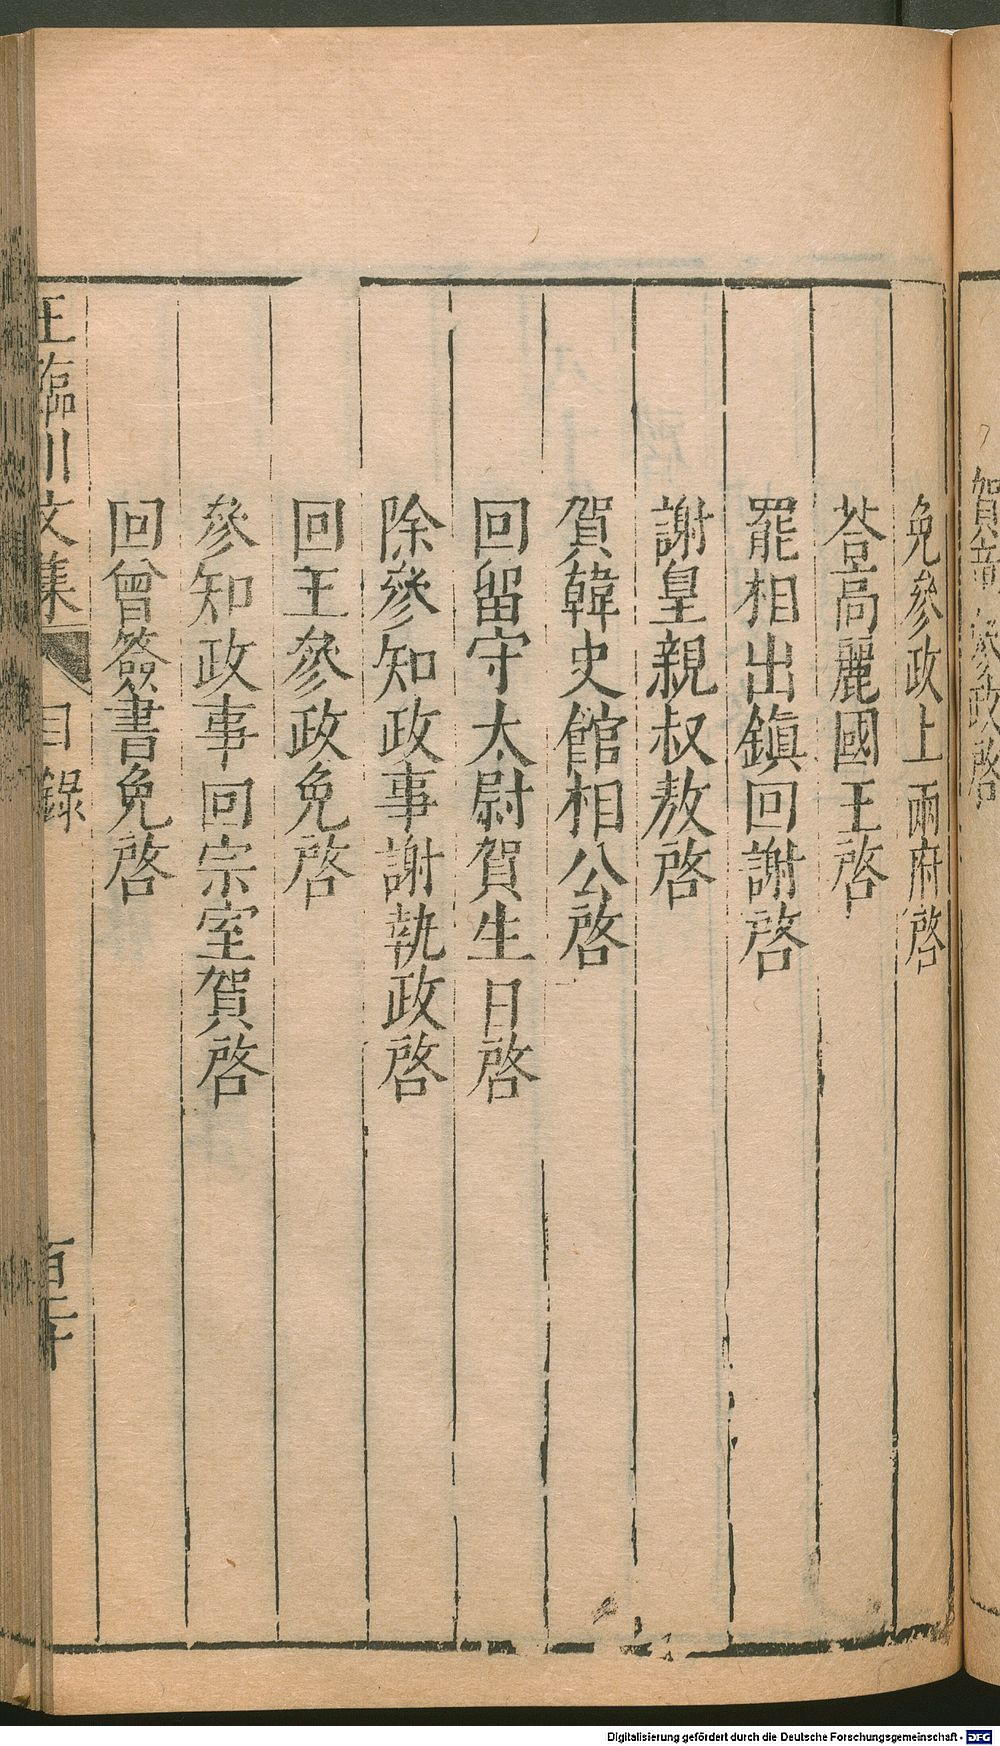 賀章參政啓
免參政上兩府啓
荅高麗國王啓
罷相出鎮回謝啓
謝皇親叔敖啓
賀韓史館相公啓
回留守太尉賀生日啓
除參知政事謝執政啓
回王參政免啓
參知政事回宗室賀啓
回曾簽書免啓
王臨川文集
目錄
Digitalisierung gefördert durch die Deutsche Forschungsgemeinschaft - DFG